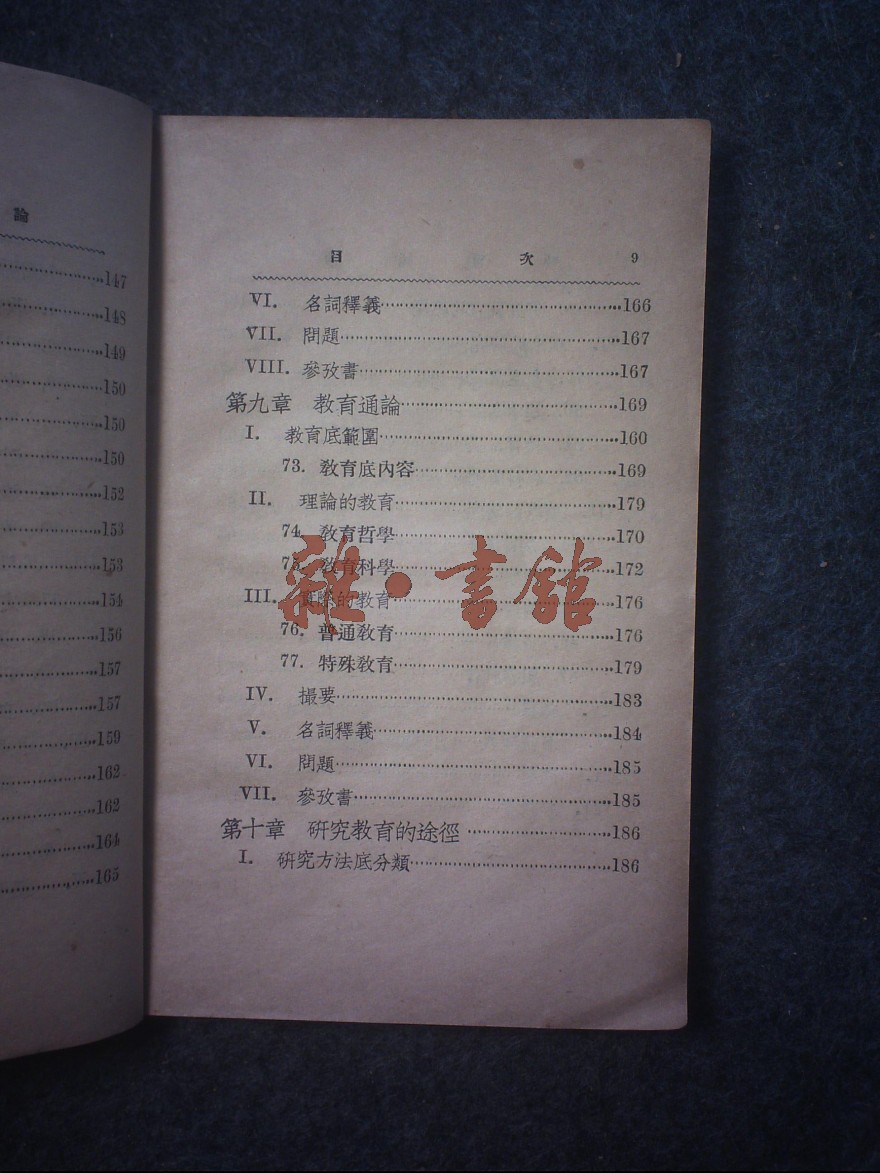 論
147
148
149
150
150
150
152
153
153
154
156
157
157
159
162
162
164
165
目 次 9
VI. 名詞釋義 166
VII. 問題 167
VIII. 參攷書 167
第九章 教育通論 169
I. 教育底範圍 160
73. 教育底內容 169
II. 理論的教育 179
74. 教育哲學 170
75. 教育科學 172
III. 實際的教育 176
76. 普通教育 176
77. 特殊教育 179
IV. 撮要 183
V. 名詞釋義 184
VI. 問題 185
VII. 參攷書 185
第十章 研究教育的途徑 186
I. 研究方法底分類 186
雜·書館